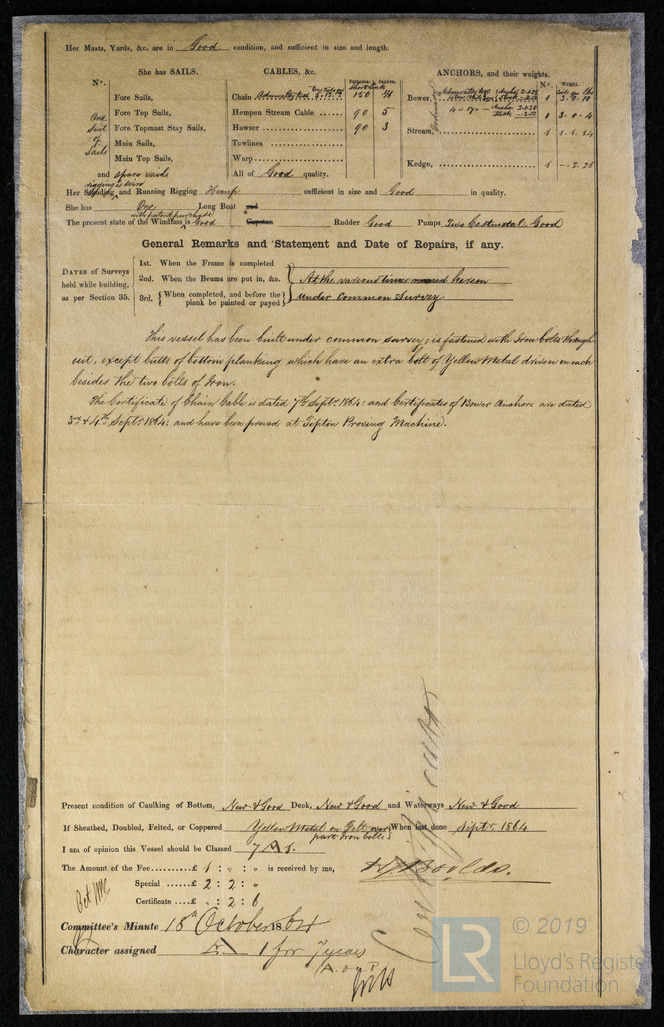 Her Masts, Yards, &c. are in Good condition, and sufficient in size and length.
She has SAILS.
CABLES, &c.
ANCHORS, and their weights.
N°.
Fathoms.
Inches.
N°.
Weight.
One Suit of Sails
Fore Sails,
Fore Top Sails,
Fore Topmast Stay Sails,
Main Sails,
Main Top Sails,
and spare sails
Chain 150
Hempen Stream Cable 90 5
Hawser 90 3
Towlines
Warp
All of Good quality.
Bower, 1
1 3.0.4
Stream, 1
Kedge, 1
Her Standing and Running Rigging Hemp sufficient in size and Good in quality.
She has One Long Boat and
with patent purchase
The present state of the Windlass is Good Capstan Rudder Good Pumps Two Castmetal, Good
General Remarks and Statement and Date of Repairs, if any.
DATES of Surveys held while building, as per Section 35.
1st. When the Frame is completed
2nd. When the Beams are put in, &c.
3rd. When completed, and before the plank be painted or payed
At the various times named herein
under common survey
This vessel has been built under common survey; is fastened with Iron bolts through
out, except butts of bottom planking which have an extra bolt of Yellow Metal driven in each
besides the two bolts of Iron.
The Certificate of Chain Cable is dated 7th Septr. 1864: and Certificates of Bower Anchors are dated
3rd & 4th Septr. 1864: and have been proved at Tipton Proving Machine.
Present condition of Caulking of Bottom, New & Good Deck, New & Good and Waterways New & Good
If Sheathed, Doubled, Felted, or Coppered Yellow Metal on Felt over part Iron bolts When last done Septr. 1864
I am of opinion this Vessel should be Classed 7 A 1.
The Amount of the Fee......£ 1 : „ : „ is received by me,
Special ......£ 2 : 2 : „
Certificate ...£ „ : 2 : 6
Committee's Minute 18th October 1864
Character assigned A 1 for 7 years
© 2019
LR
Lloyd's Register
Foundation